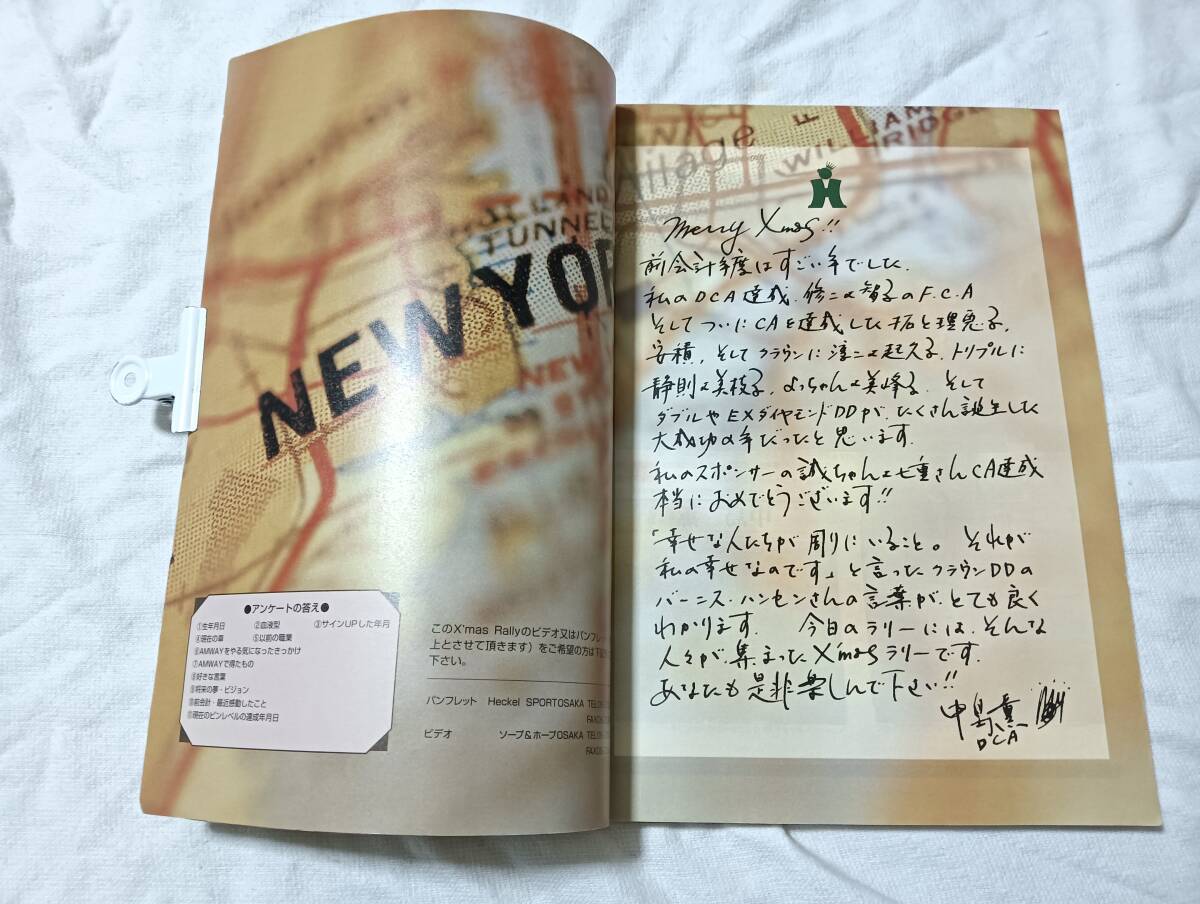 NEW YOR
ISLAND
TUNNEL
NEW
●アンケートの答え●
①生年月日 ②血液型 ③サインUPした年月
④現在の車 ⑤以前の職業
⑥AMWAYをやる気になったきっかけ
⑦AMWAYで得たもの
⑧好きな言葉
⑨将来の夢・ビジョン
⑩前会計・最近感動したこと
⑪現在のピンレベルの達成年月日
このX'mas Rallyのビデオ又はパンフレ
上とさせて頂きます）をご希望の方は下
下さい。
パンフレット Heckel SPORTOSAKA TEL
FAX
ビデオ ソープ＆ホープOSAKA TEL
FAX
Village
WILLIAM
RIDGE
H
Merry Xmas!!
前会計年度はすごい年でした.
私のDCA達成.修二&智子のF.C.A
そしてついにCAを達成した拓と理恵子,
安積, そしてクラウンに淳二&起久子,トリプルに
静則&美枝子, よっちゃん&美峰子. そして
ダブルやEXダイヤモンドDDが,たくさん誕生した
大成功の年だったと思います.
私のスポンサーの誠ちゃんと七重さんCA達成
本当におめでとうございます!!
「幸せな人たちが周りにいること。それが
私の幸せなのです」と言ったクラウンDDの
バーニス・ハンセンさんの言葉が,とても良く
わかります. 今日のラリーには,そんな
人々が,集まったX'masラリーです.
あなたも是非楽しんで下さい!!
中島薫
DCA